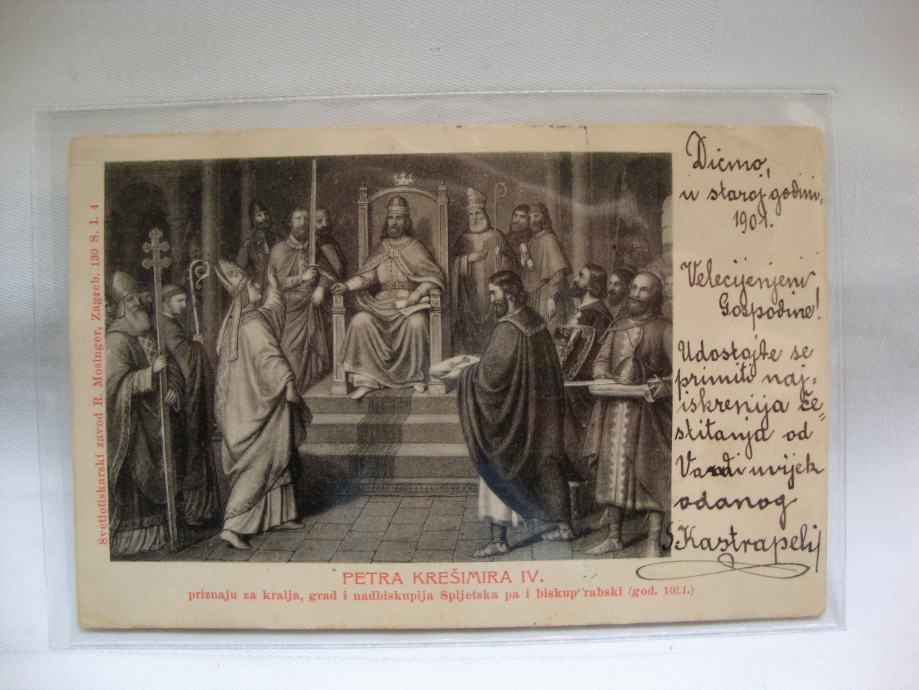 Svetlotiskarski zavod R. Mosinger, Zagreb. 130 S. I. 4
Dicmo,
u staroj godini,
1901.
Velecijenjeni
Gospodine!
Udostojte se
primiti naj-
iskrenija če-
stitanja od
Vazdi uvijek
odanog
SKastrapelij
PETRA KREŠIMIRA IV.
priznaju za kralja, grad i nadbiskupija Spljetska pa i biskup rabski (god.